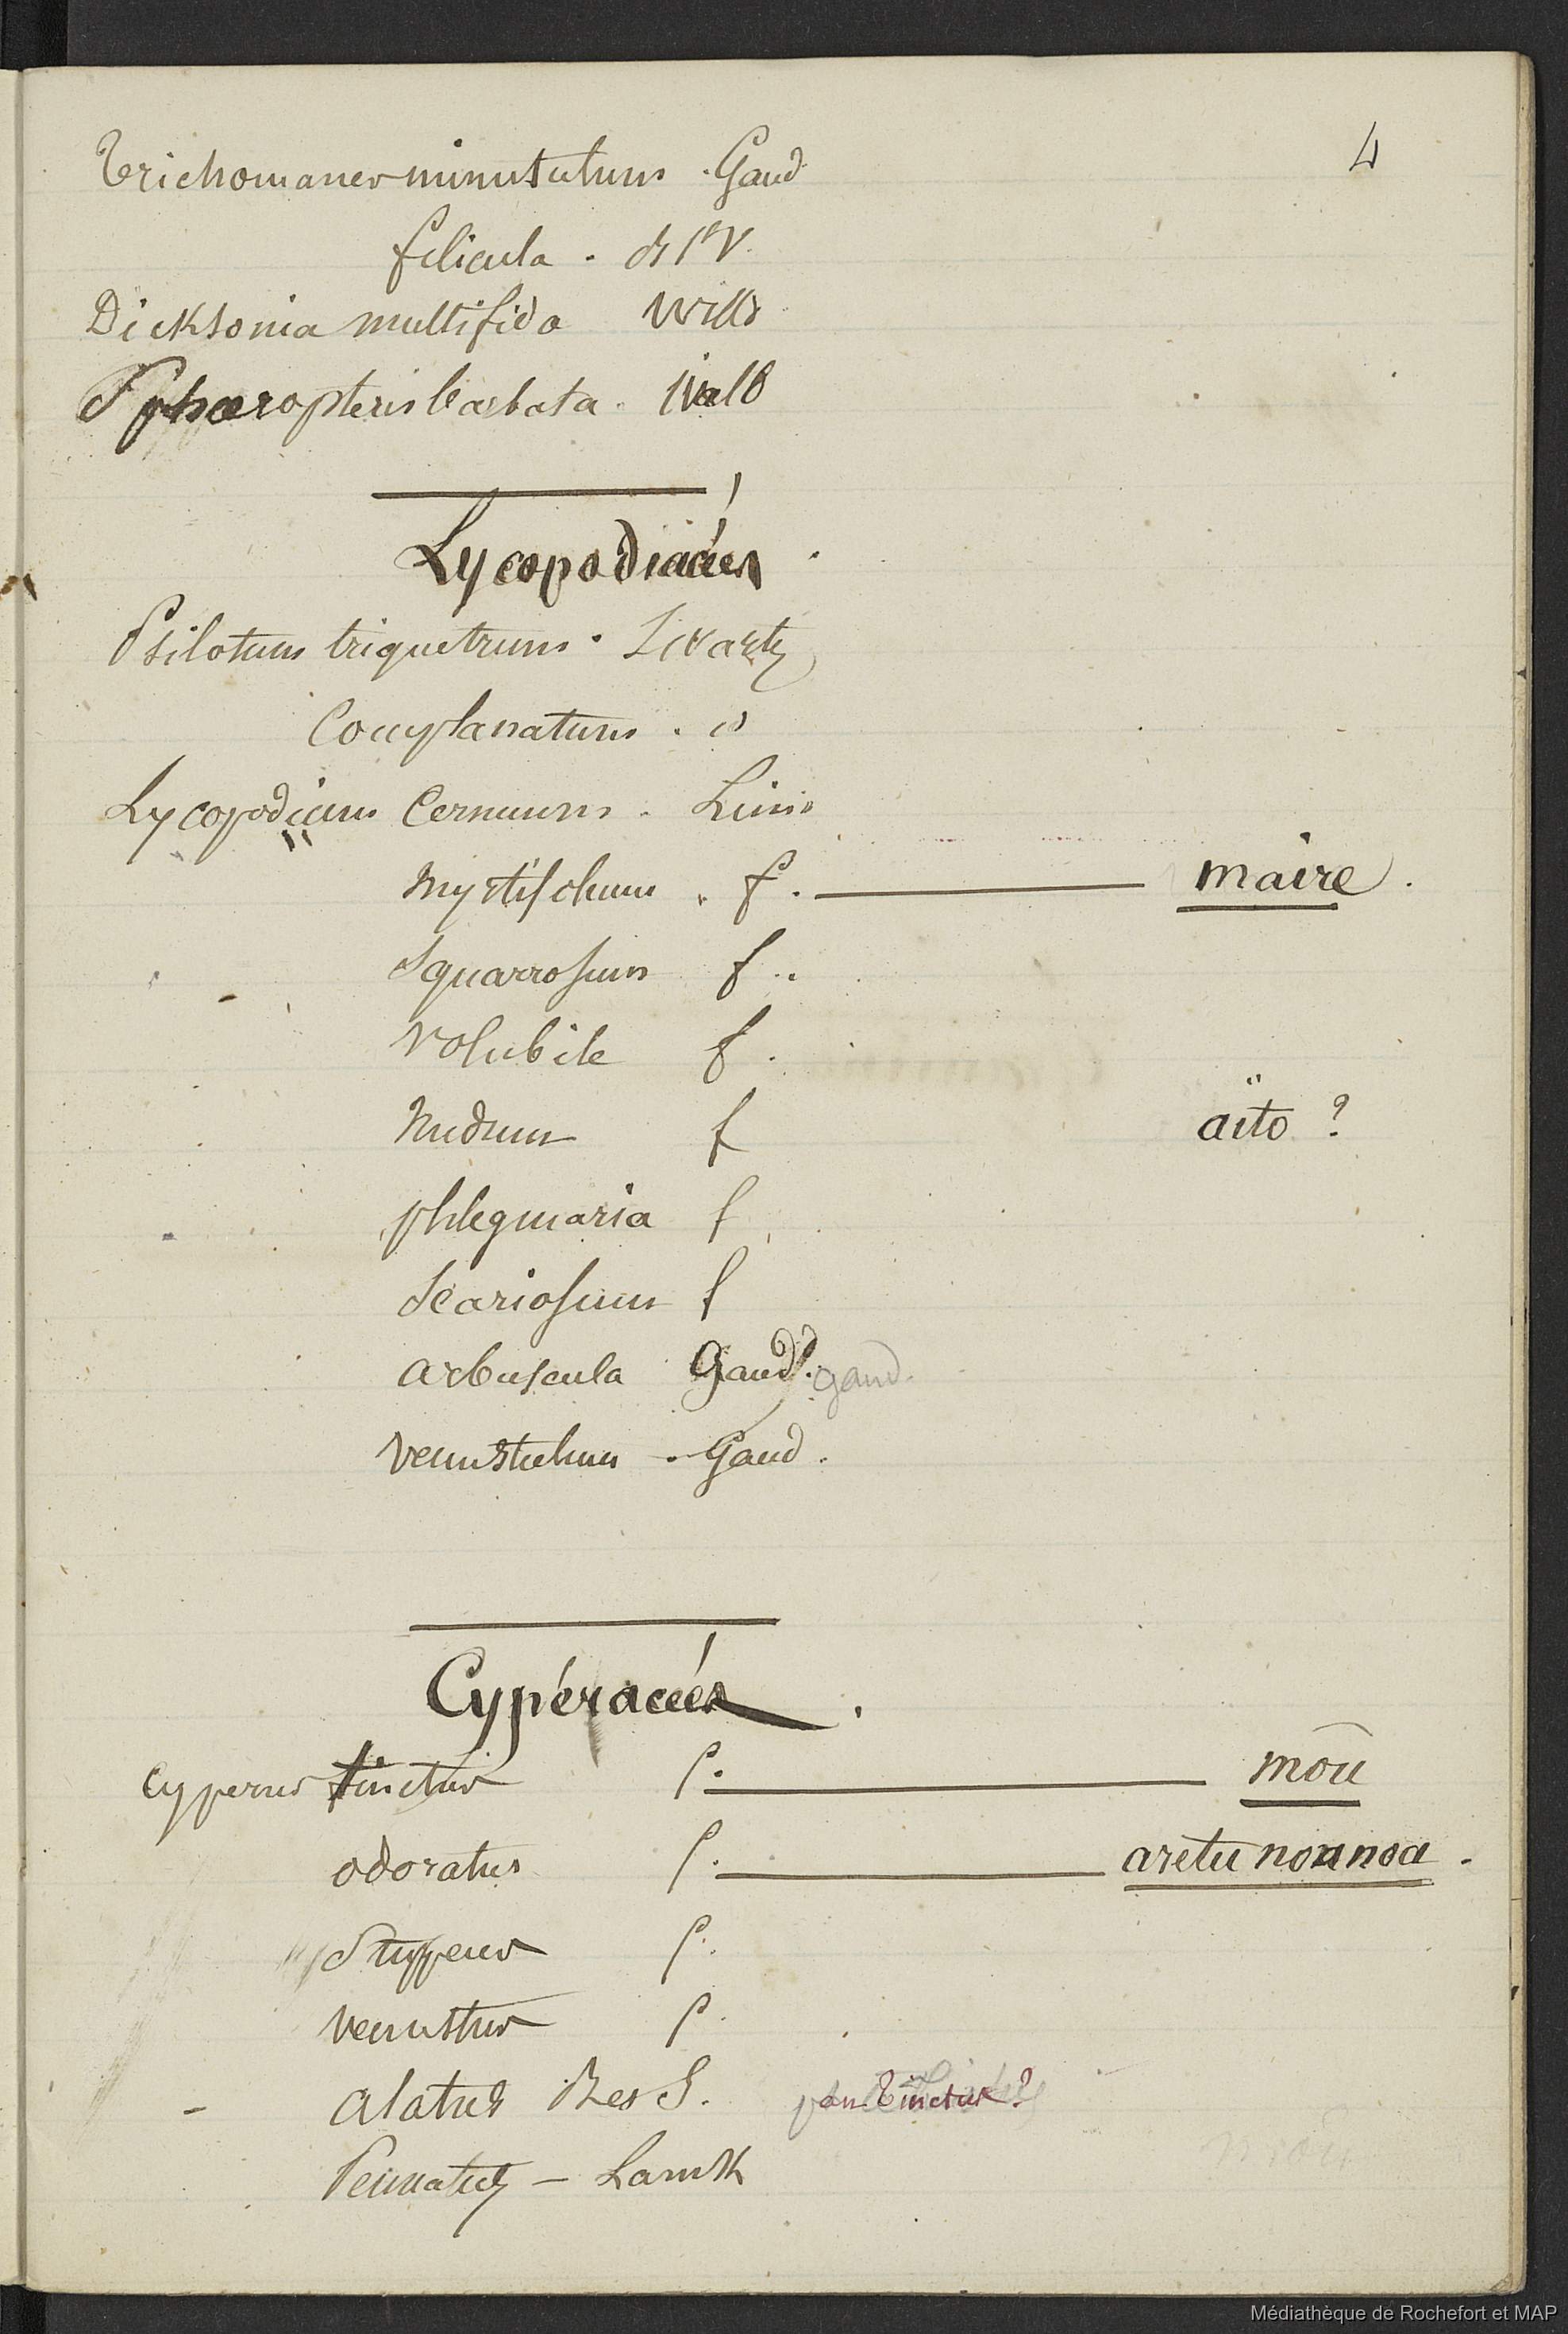 4
Trichomanes minutulum . Gaud
filicula . d St V.
Dicksonia multifida Willd
Sphœropteris barbata . Wall
Lycopodiacées .
Psilotum triquetrum . Swartz
Complanatum . d
Lycopodium Cernuum . Linn
myrtifolium . f . maire .
Squarrosum f .
volubile f .
nudum f aïto ?
phlegmaria f
Scariosum f
arbuscula Gaud . gaud .
venustulum . Gaud .
Cypéracées .
Cyperus tinctus f . moū
odoratus f . aretu noanoa .
Stuppeus f .
venustus f .
alatus R et S . tinctus ?
Pennatus — Lamk
moū
Médiathèque de Rochefort et MAP